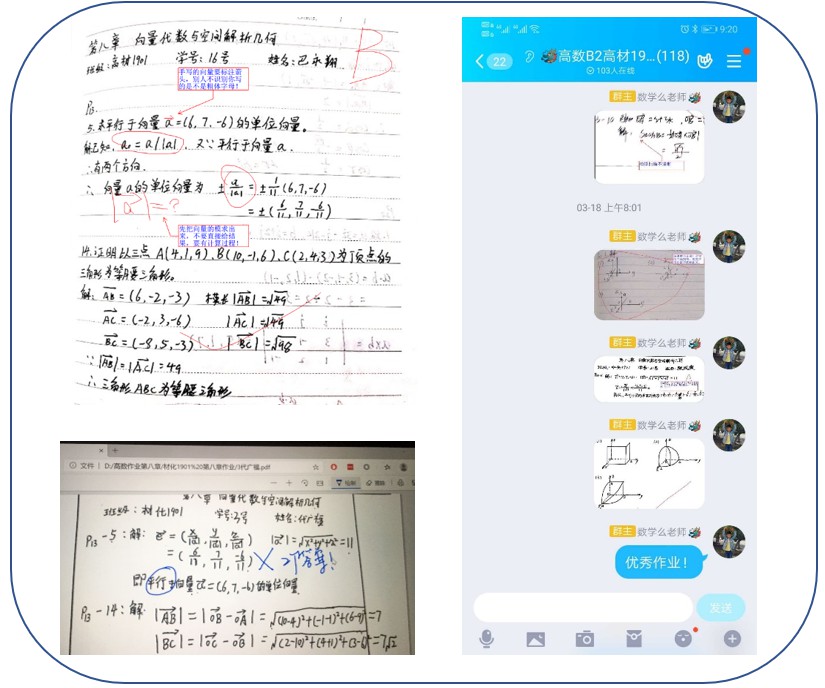 第八章 向量代数与空间解析几何
班级:高材1901 学号:16号 姓名:巴永翔
B
手写的向量要标注箭
头,别人不识别你写
的是不是粗体字母!
P13
5.求平行于向量 a=(6,7,-6)的单位向量。
解:已知, a=a/|a|, 又∵平行于向量a.
∴有两个方向.
∴ 向量a的单位向量为 ±a/|a| = ±1/11(6,7,-6)
= ±(6/11, 7/11, -6/11)
|a|=?
先把向量的模求出
来,不要直接给结
果,要有计算过程!
14.证明以三点 A(4,1,9)、B(10,-1,6)、C(2,4,3)为顶点的
三角形为等腰三角形。
解: AB=(6,-2,-3) |AB|=√49
AC=(-2,3,-6) |AC|=√49
BC=(-8,5,-3) |BC|=√98
∵|AB|=|AC|=49
∴三角形ABC为等腰三角形
文件 | D:/高数作业第八章/材化1901%20第八章作业/代广福.pdf
第八章 向量代数与空间解析几何
班级:材化1901 学号:2号 姓名:代广福
P13-5:解: e=(x/|a|, y/|a|, z/|a|) |a|=√x²+y²+z²=11
=(6/11, 7/11, -6/11) X 2个答案!
即平行于向量a=(6,7,-6)的单位向量
P13-14:解: |AB|=|OB-OA|=√(10-4)²+(-1-1)²+(6-9)²=7
|BC|=|OC-OB|=√(2-10)²+(4+1)²+(3-6)²=7√2
9:20
22
高数B2高材19...(118)
103人在线
群主 数学么老师
03-18 上午8:01
群主 数学么老师
群主 数学么老师
群主 数学么老师
群主 数学么老师
优秀作业!
发送